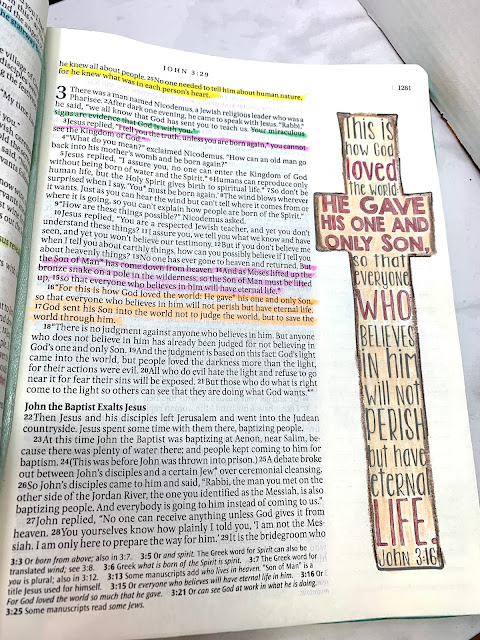 JOHN 3:29
1281
he knew all about people. 25No one needed to tell him about human nature,
for he knew what was in each person's heart.
3 There was a man named Nicodemus, a Jewish religious leader who was a
Pharisee. 2After dark one evening, he came to speak with Jesus. "Rabbi,"
he said, "we all know that God has sent you to teach us. Your miraculous
signs are evidence that God is with you."
3Jesus replied, "I tell you the truth, unless you are born again,* you cannot
see the Kingdom of God."
4"What do you mean?" exclaimed Nicodemus. "How can an old man go
back into his mother's womb and be born again?"
5Jesus replied, "I assure you, no one can enter the Kingdom of God
without being born of water and the Spirit.* 6Humans can reproduce only
human life, but the Holy Spirit gives birth to spiritual life.* 7So don't be
surprised when I say, 'You* must be born again.' 8The wind blows wherever
it wants. Just as you can hear the wind but can't tell where it comes from or
where it is going, so you can't explain how people are born of the Spirit."
9"How are these things possible?" Nicodemus asked.
10Jesus replied, "You are a respected Jewish teacher, and yet you don't
understand these things? 11I assure you, we tell you what we know and have
seen, and yet you won't believe our testimony. 12But if you don't believe me
when I tell you about earthly things, how can you possibly believe if I tell you
about heavenly things? 13No one has ever gone to heaven and returned. But
the Son of Man* has come down from heaven. 14And as Moses lifted up the
bronze snake on a pole in the wilderness, so the Son of Man must be lifted
up, 15so that everyone who believes in him will have eternal life.*
16"For this is how God loved the world: He gave* his one and only Son,
so that everyone who believes in him will not perish but have eternal life.
17God sent his Son into the world not to judge the world, but to save the
world through him.
18"There is no judgment against anyone who believes in him. But anyone
who does not believe in him has already been judged for not believing in
God's one and only Son. 19And the judgment is based on this fact: God's light
came into the world, but people loved the darkness more than the light,
for their actions were evil. 20All who do evil hate the light and refuse to go
near it for fear their sins will be exposed. 21But those who do what is right
come to the light so others can see that they are doing what God wants.*"
John the Baptist Exalts Jesus
22Then Jesus and his disciples left Jerusalem and went into the Judean
countryside. Jesus spent some time with them there, baptizing people.
23At this time John the Baptist was baptizing at Aenon, near Salim, be-
cause there was plenty of water there; and people kept coming to him for
baptism. 24(This was before John was thrown into prison.) 25A debate broke
out between John's disciples and a certain Jew* over ceremonial cleansing.
26So John's disciples came to him and said, "Rabbi, the man you met on the
other side of the Jordan River, the one you identified as the Messiah, is also
baptizing people. And everybody is going to him instead of coming to us."
27John replied, "No one can receive anything unless God gives it from
heaven. 28You yourselves know how plainly I told you, 'I am not the Mes-
siah. I am only here to prepare the way for him.' 29It is the bridegroom who
3:3 Or born from above; also in 3:7. 3:5 Or and spirit. The Greek word for Spirit can also be
translated wind; see 3:8. 3:6 Greek what is born of the Spirit is spirit. 3:7 The Greek word for
you is plural; also in 3:12. 3:13 Some manuscripts add who lives in heaven. "Son of Man" is a
title Jesus used for himself. 3:15 Or everyone who believes will have eternal life in him. 3:16 Or
For God loved the world so much that he gave. 3:21 Or can see God at work in what he is doing.
3:25 Some manuscripts read some Jews.
This is
how God
loved
the world:
HE GAVE
HIS ONE AND
ONLY SON,
so that
EVERYONE
WHO
BELIEVES
IN HIM
WILL NOT
PERISH
but have
eternal
LIFE.
John 3:16